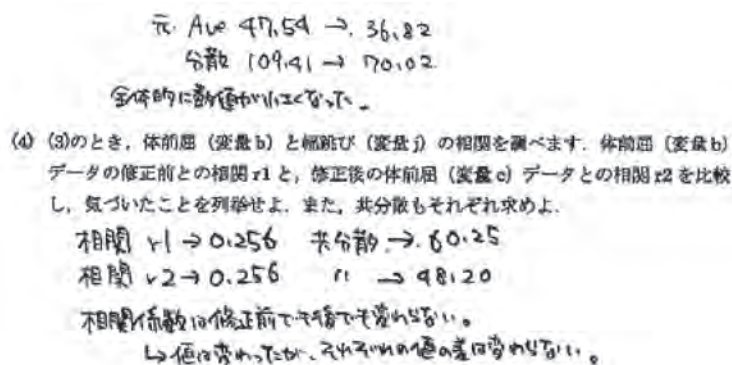 元. Ave 47.54 →. 36.82
分散 109.41 → 70.02
全体的に数値が小さくなった。
(4) (3)のとき，体前屈（変量b）と幅跳び（変量j）の相関を調べます．体前屈（変量b）
データの修正前との相関r1と，修正後の体前屈（変量c）データとの相関r2を比較
し，気づいたことを列挙せよ．また，共分散もそれぞれ求めよ．
相関 r1 → 0.256 共分散 →. 60.25
相関 r2 → 0.256 〃 → 48.20
相関係数は修正前でも後でも変わらない。
↳値は変わったが、それぞれの値の差は変わらない。